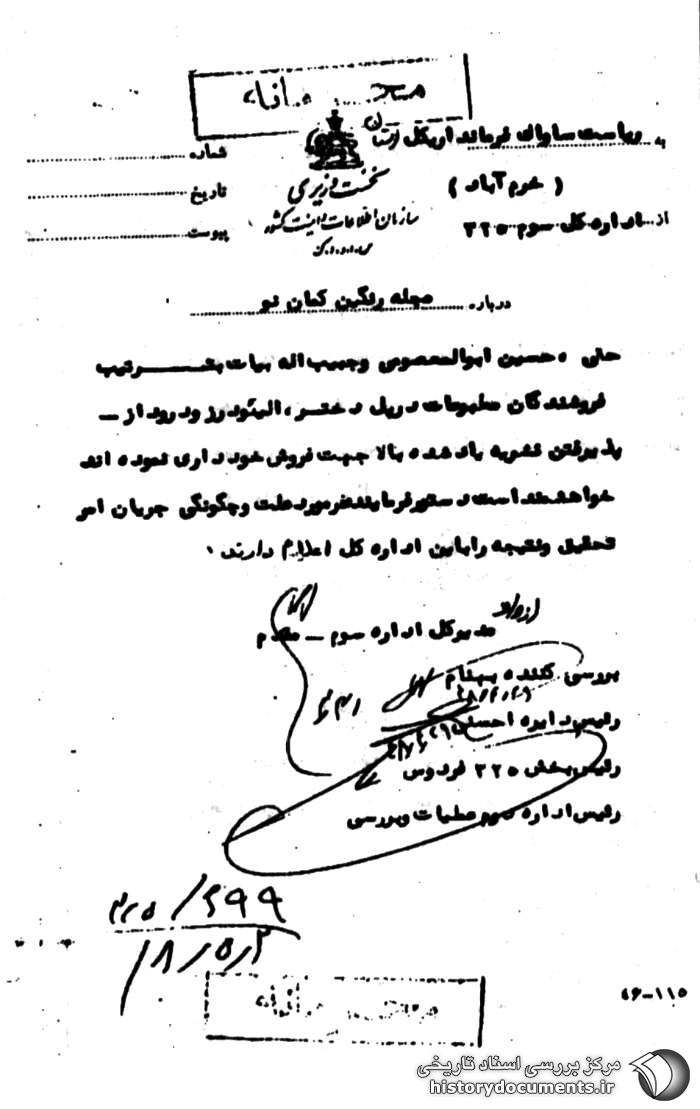 محرمانه
به ریاست ساواک فرمانداریکل لرستان
( خرم آباد )
از اداره کل سوم ۳۲۵
نخست وزیری
سازمان اطلاعات و امنیت کشور
س.ا.و.ا.ک
شماره
تاریخ
پیوست
درباره مجله رنگین کمان نو
حسین ابوالمعصومی وحبیب اله بیات بترتیب
فروشندگان مطبوعات درپل دختر ، الیگودرز ودرود از –
پذیرفتن نشریه یادشده بالا جهت فروش خودداری نموده اند
خواهشمند است دستور فرمایند درمورد علت وچگونگی جریان امر
تحقیق ونتیجه رابه این اداره کل اعلام دارند .
مدیرکل اداره سوم – مقدم
بررسی کننده بهنام
۴۸/۴/۲۹
رئیس دایره احسنی
رئیس بخش ۳۲۵ فردوس
رئیس اداره سوم عملیات وبررسی
۳۲۵/۶۹۹
۴۸/۵/۲
محرمانه
۴۶-۱۱۵
مرکز بررسی اسناد تاریخی
historydocuments.ir